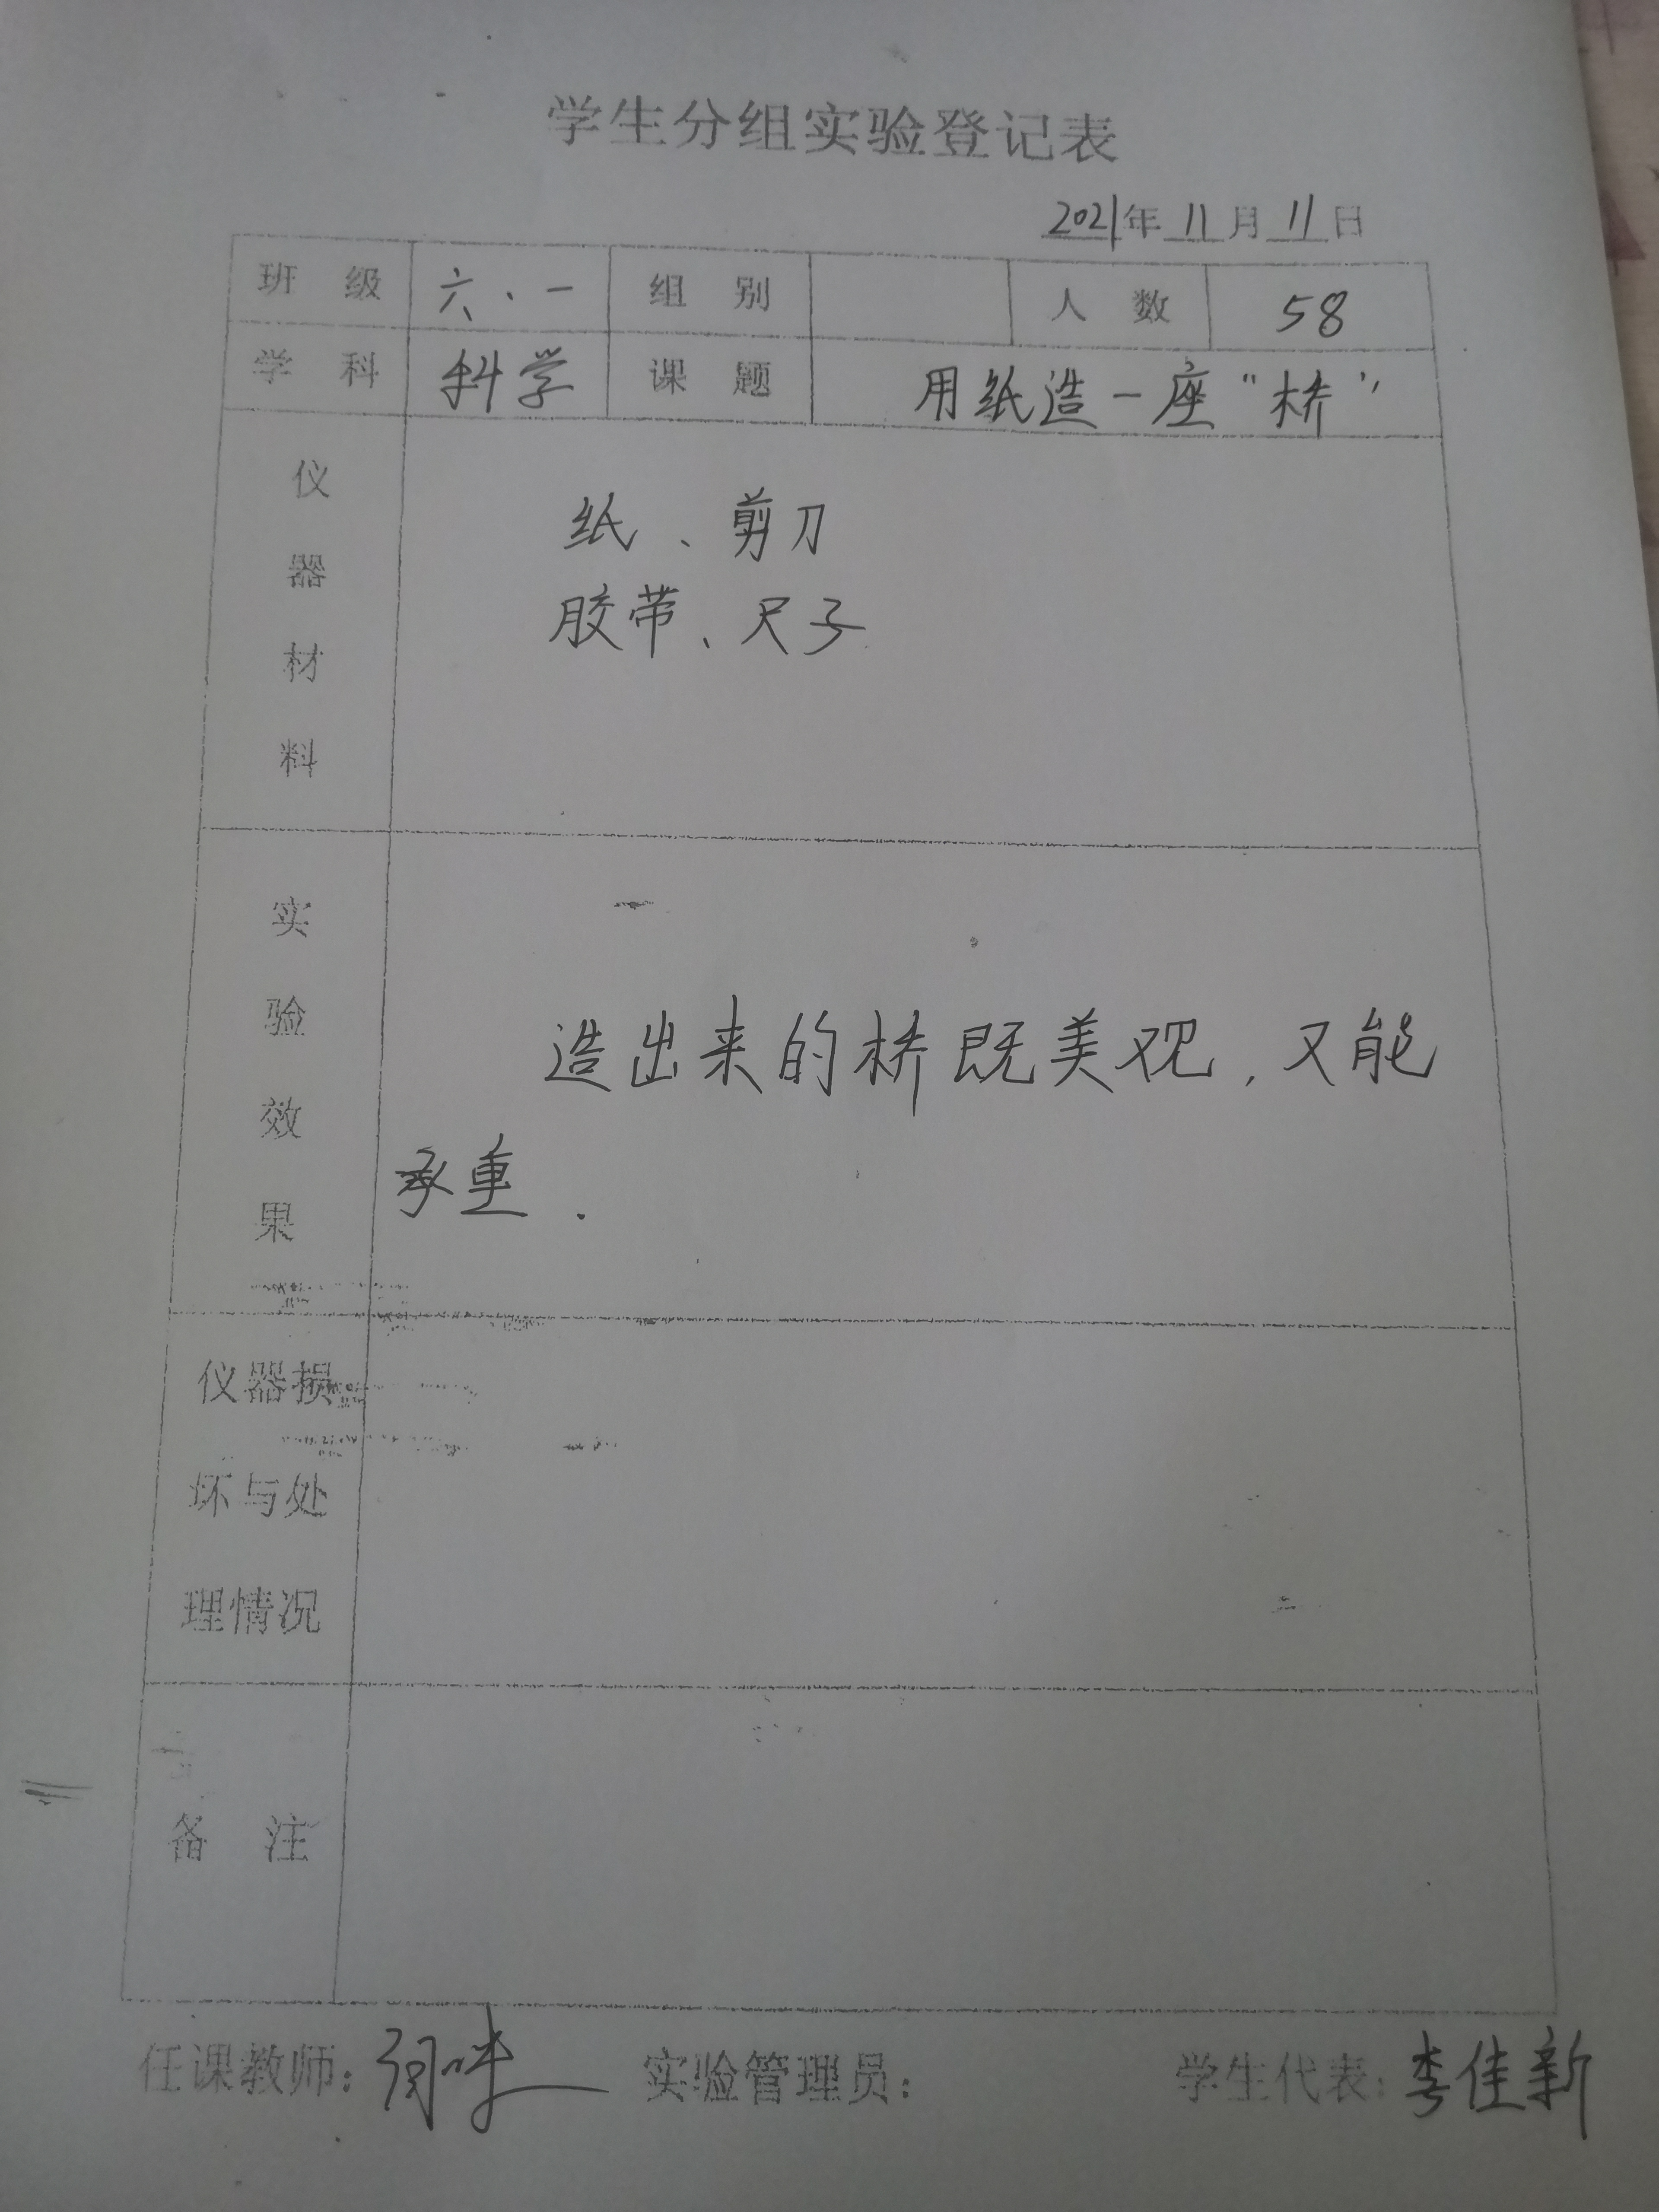 学生分组实验登记表
2021年 11 月 11 日
班 级 六、一 组 别 人 数 58
学 科 科学 课 题 用纸造一座“桥”
仪器材料
纸、剪刀
胶带、尺子
实验效果
造出来的桥既美观,又能
承重.
仪器损
坏与处
理情况
备 注
任课教师: 实验管理员: 学生代表:李佳新